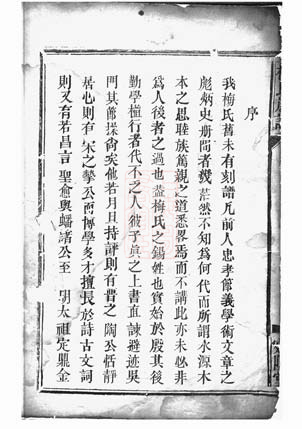 序
我梅氏舊未有刻譜凡前人忠孝節義學術文章之
彪炳史册間者幾茫然不知為何代而所謂水源木
本之思睦族篤親之道悉畧焉而不講此亦未必非
為人後者之過也蓋梅氏之錫姓也實始於殷其後
勤學植行者代不乏人彼子眞之上書直諫避迹吳
門其節操尚矣他若月旦持評則有晉之 陶公恬靜
居心則有 宋之摯公而博學多才擅長於詩古文詞
則又有若昌言 聖兪與蟠諸公至 明太祖定鼎金